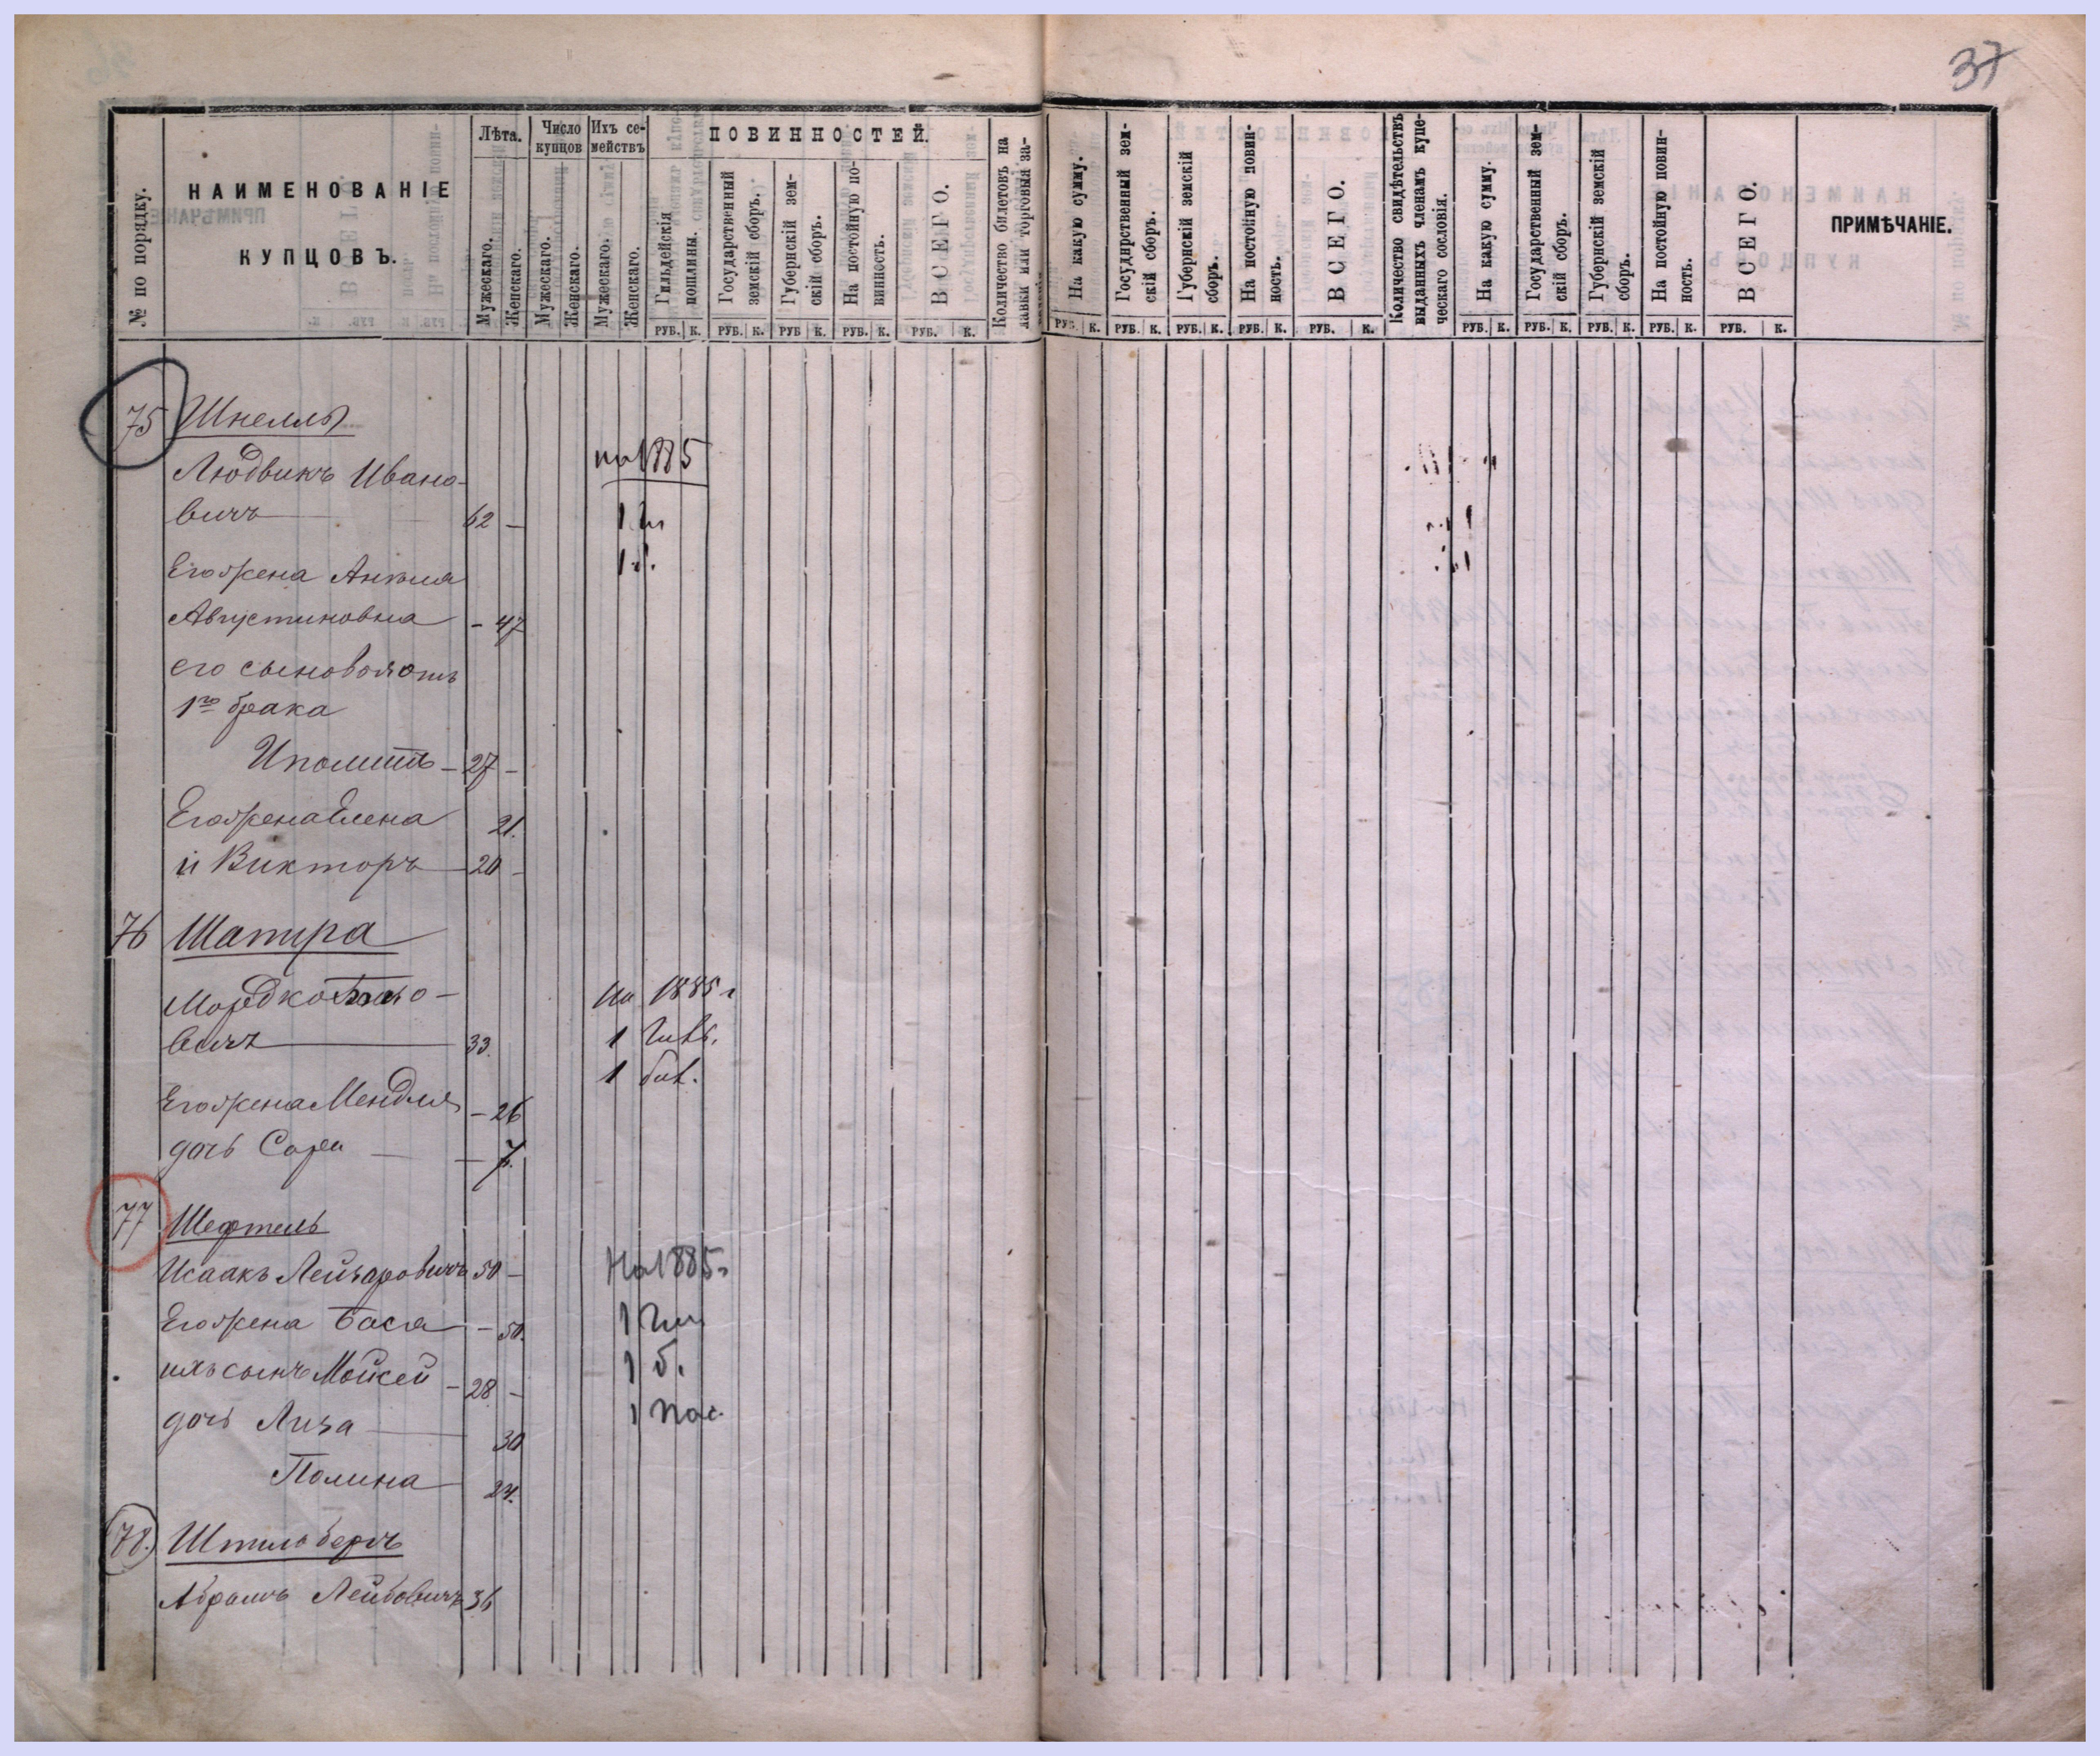 37
№ по порядку.
НАИМЕНОВАНІЕ
КУПЦОВЪ.
Лѣта.
Мужескаго.
Женскаго.
Число купцов
Мужескаго.
Женскаго.
Ихъ се-
мействъ
Мужескаго.
Женскаго.
ПОВИННОСТЕЙ.
Гильдейскія
пошлины.
РУБ. К.
Государственный
земскій сборъ.
РУБ. К.
Губернскій зем-
скій сборъ.
РУБ К.
На постойную по-
винность.
РУБ. К.
ВСЕГО.
РУБ. К.
Количество билетовъ на
лавки или торговыя за-
На какую сумму.
РУБ. К.
Государственный зем-
скій сборъ.
РУБ. К.
Губернскій земскій
сборъ.
РУБ. К.
На постойную повин-
ность.
РУБ. К.
ВСЕГО.
РУБ. К.
Количество свидѣтельствъ
выданныхъ членамъ купе-
ческаго сословія.
На какую сумму.
РУБ. К.
Государственный зем-
скій сборъ.
РУБ. К.
Губернскій земскій
сборъ.
РУБ. К.
На постойную повин-
ность.
РУБ. К.
ВСЕГО.
РУБ. К.
ПРИМѢЧАНІЕ.
75 Шнелль
Людвикъ Ивано- на 1885
вичъ 62 — 1 ги
Его жена Анеля 1 б.
Августиновна — 47
его сыновья отъ
1го брака
Иполитъ — 27 —
Его жена Елена 21.
и Викторъ — 20 —
76 Шапира
Мордко о- на 1885 г
вичъ 33. 1 гил.
1 бил.
Его жена Мендля — 26
дочь Сора — 7.
77 Шефтель
Исаакъ Лейзаровичъ 50 — На 1885 г
Его жена Бася — 50. 1 гил
ихъ сынъ Мойсей — 28 — 1 б.
дочь Лиза 30 1 пос.
Полина 24.
78. Штильбергъ
Абрамъ Лейбовичъ 36